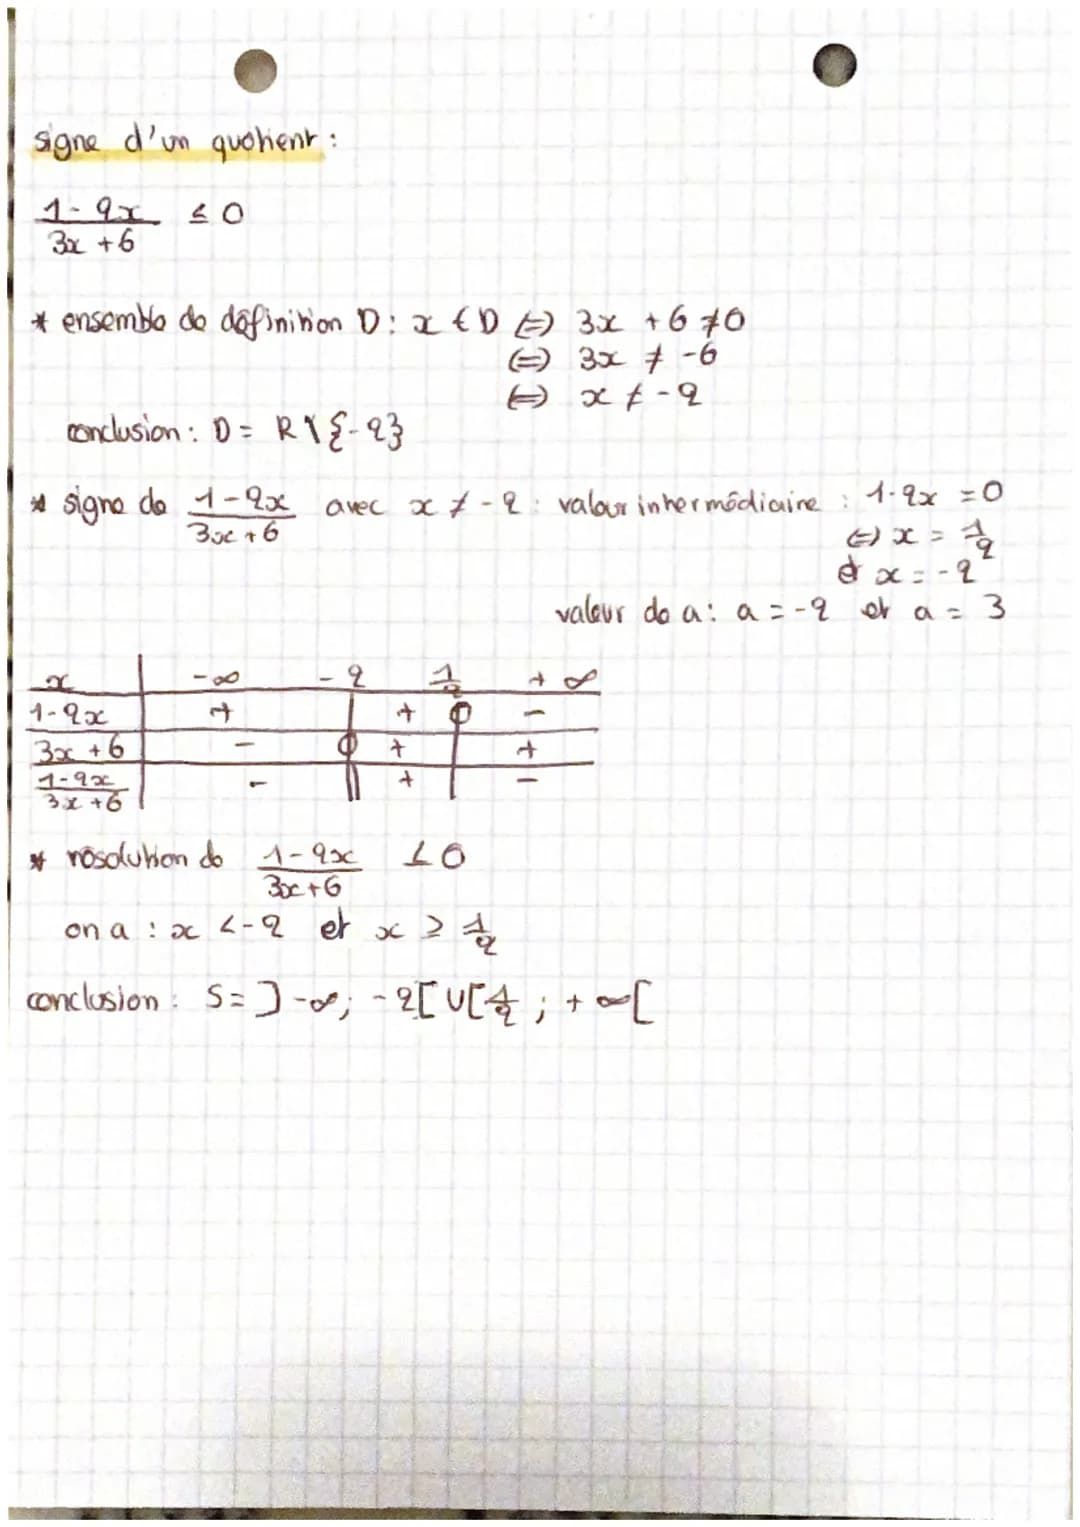 signe d'un quotient :
1-2x / 3x+6 ≤ 0
* ensemble de définition D : x ∈ D ⇔ 3x + 6 ≠ 0
⇔ 3x ≠ -6
⇔ x ≠ -2
conclusion : D = R \ {-2}
* signe de 1-2x / 3x+6 avec x ≠ -2 : valeur intermédiaire : 1-2x = 0
⇔ x = 1/2
et x = -2
valeur de a : a = -2 et a = 3
x -∞ -2 1/2 +∞
1-2x + + 0 -
3x+6 - 0 + +
1-2x / 3x+6 - || + -
* résolution de 1-2x / 3x+6 ≤ 0
on a : x < -2 et x ≥ 1/2
conclusion : S = ]-∞; -2[ U [1/2 ; +∞[